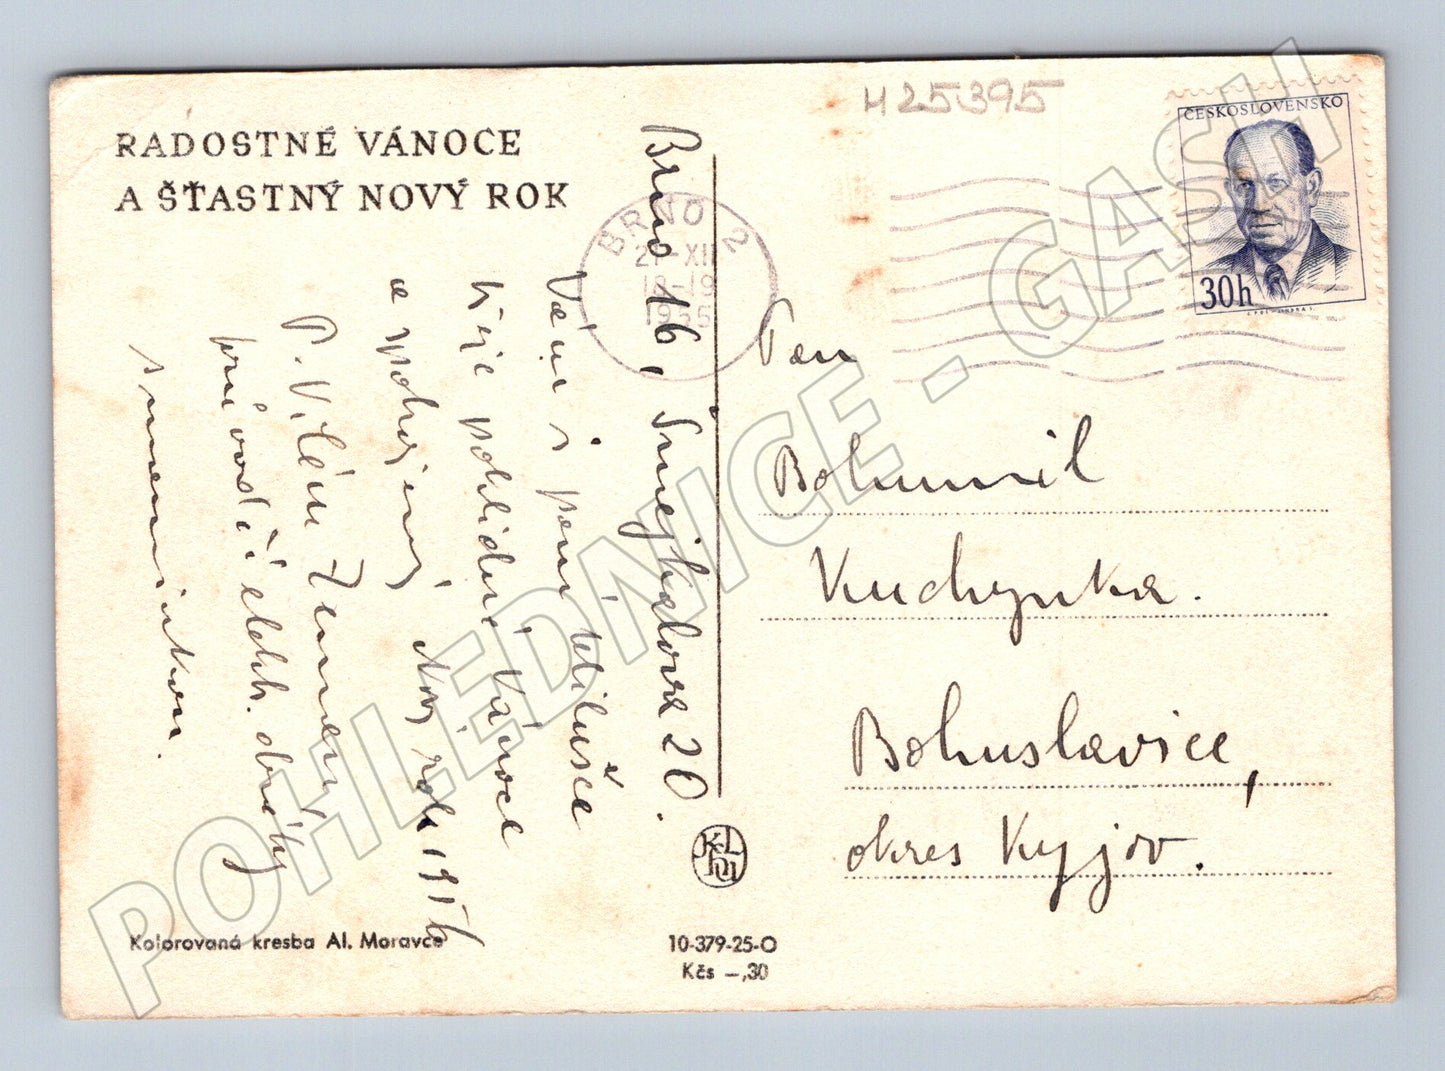 RADOSTNÉ VÁNOCE
A ŠŤASTNÝ NOVÝ ROK
H25395
ČESKOSLOVENSKO
30h
BRNO 2
21-XII
18-19
1955
Brno 16, Smejkalova 20.
Vám i paní
přeje pohlidné Vánoce
a spokojený Nový rok 1956
P. Vilém Zemený
průvodčí elektr. dráhy
Pan
Bohumil
Kuchyňka.
Bohuslavice,
okres Kyjov.
Kolorovaná kresba Al. Moravce
10-379-25-O
Kčs –,30
POHLEDNICE - GASH